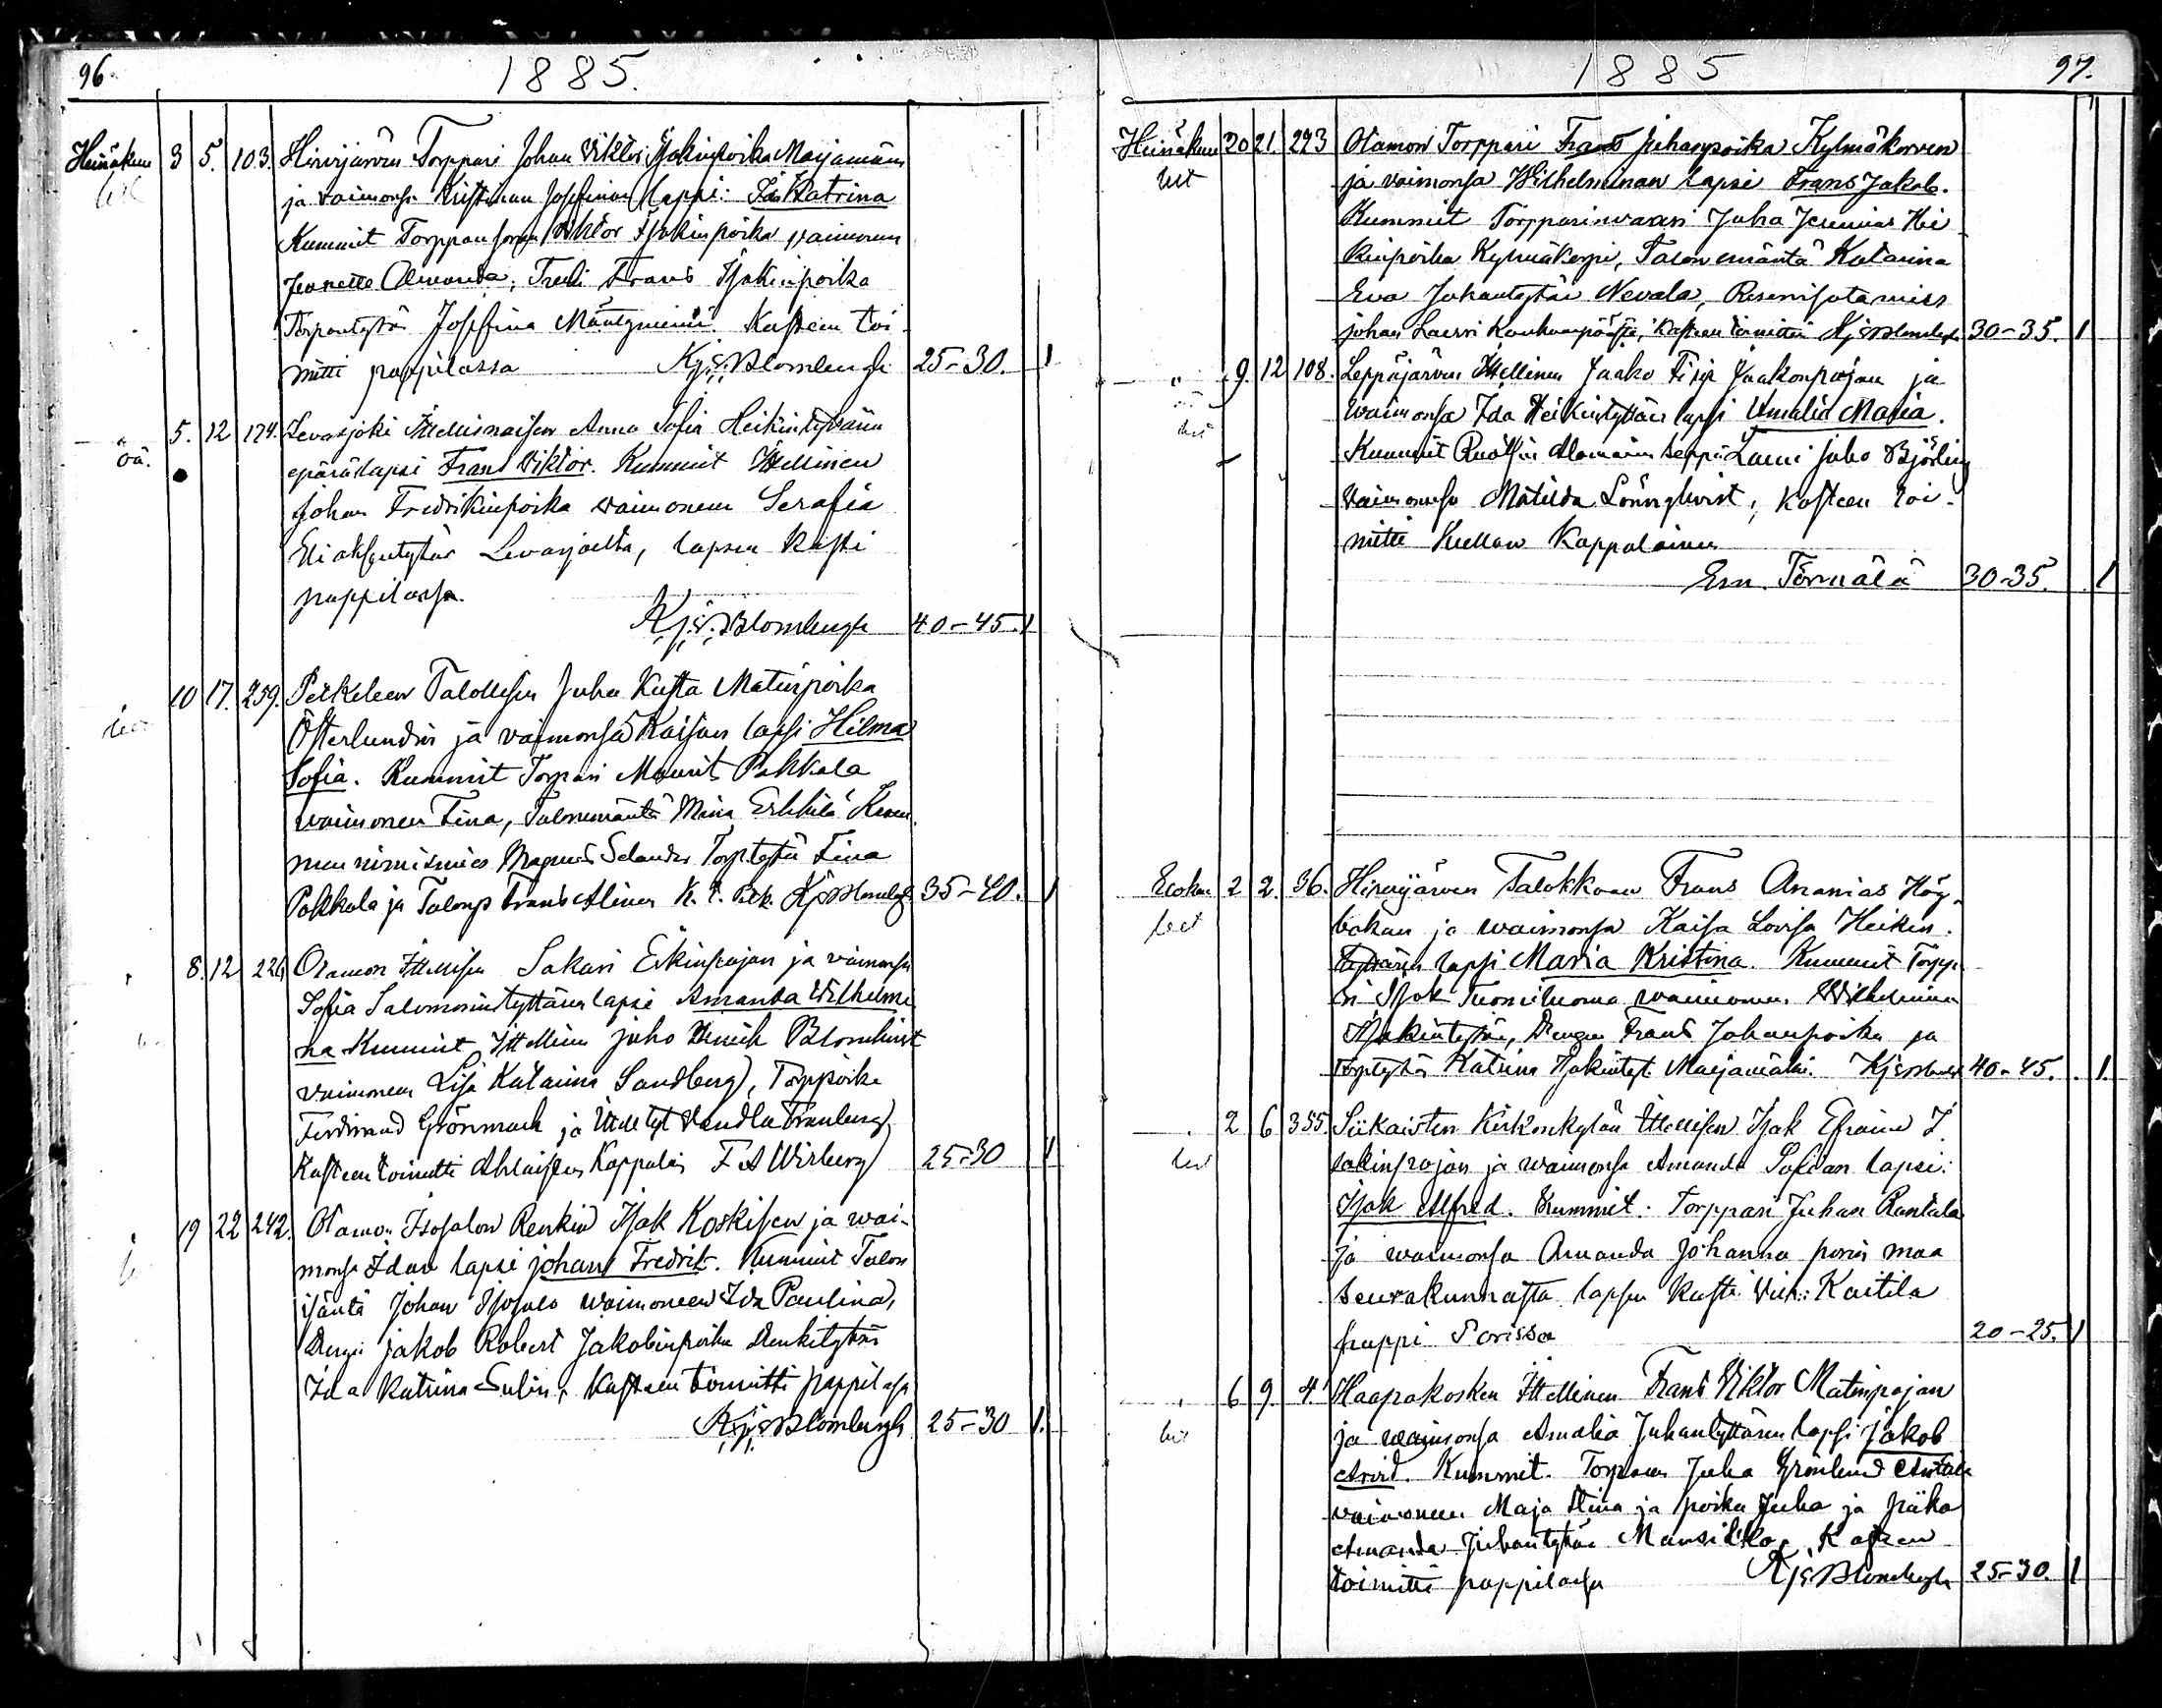 96.
1885.
Heinäkuu 3 5. 103. Hirvijärven Torppari Johan Viktor Isakinpoika Maijamäen
ja vaimonsa Kristinan Josefinan lapsi: Ida Katrina
Kummit Torppari Viktor Isakinpoika vaimonen
Jeanette Amanda, Trenki Frans Isakinpoika
Torpantytär Josefina Mäntyniemi. Kasteen toi-
mitti pappilassa Kj. E. Blombergh 25-30. 1
oä. 5. 12 174. Levasjoki Ittellisnaisen Anna Sofia Heikintyttären
epäräslapsi Frans Viktor. Kummit Ittellinen
Johan Fredrikinpoika vaimonen Serafia
Eliaksentytär Levasjoelta, lapsen kasti
pappilassa.
Kj. E. Blombergh 40-45. 1
10 17. 259. Peikeleen Talollisen Juha Kusta Matinpoika
Österlundin ja vaimonsa Kaisan lapsi Hilma
Sofia. Kummit Torpari Maurit Pakkala
vaimonen Tina, Talonemäntä Mina Erkkilä
nimismies Magnus Selander Torptytär Tina
Pakkala ja Talonp Frans Alinen K. t. Kj E Blombergh 35-40. 1
8. 12 226 Otamon Ittellisen Sakari Erkinpojan ja vaimonsa
Sofia Salomonintyttären lapsi Amanda Wilhelmi
na Kummit Ittellinen juho Henrik Blomkvist
vaimonen Lisa Katarina Sandberg, Torppoika
Ferdinand Grönmark ja Ittelltyt Vendla Tranberg,
Kasteen toimitti Ahlaisten Kappalai F A Wirberg 25-30 1
19 22 242. Otamon Isosalon Renkin Isak Koskisen ja wai-
monsa Idan lapsi johan Fredrik. Kummit Talon
isäntä Johan Isosalo waimoneen Ida Paulina,
Renki jakob Robert Jakobinpoika Renkitytär
Ida Katrina Sulin, Kasteen toimitti pappilasa
Kj. E Blombergh 25-30 1.
1885
97.
Heinäkuu 20 21. 293 Otamon Torppari Frans Juhanpoika Kylmäkorven
ja vaimonsa Wilhelminan lapsi Frans Jakob.
Kummit Torpparinvaari Juha Jeremias Hei-
kinpoika Kylmäkorpi, Talon emäntä Katarina
Eva Juhantytär Nevala, Reservisotamies
johan Lauri Kankaanpäästä, Kasteen toimitti Kj E Blombergh 30-35. 1
" 9. 12 108. Leppäjärven Ittellinen Jaako Fisip Jaakonpojan ja
Waimonsa Ida Heikintyttären lapsi Amalia Maria.
Kummit Ruottin Alamaan seppä Lauri Juho Björling
Vaimonsa Matilda Lönnqwist, Kasteen toi-
mitti Kullaan Kappalainen
Em. Törnälä 30-35. 1
Elokuu 2 2. 36. Hirvijärven Talokkaan Frans Ananias Hög-
backan ja waimonsa Kaisa Lovisa Heikin-
tyttären lapsi Maria Kristina. Kummit Torpp-
ri Isak Tuomiluoma waimonen Wilhelmina
Isakintytär, Renki Frans Johanpoika ja
torptytär Katrina Isakintyt. Maijamäki. Kj E Blombergh 40-45. 1.
2 6 355 Siikaisten Kirkonkylän Ittellisen Isak Efraim I-
sakinpojan ja waimonsa Amanda Sofian lapsi:
Isak Alfred. Kummit: Torppari Juhan Rantala
ja waimonsa Amanda Johanna porin maa
seurakunnasta lapsen kasti Vicz: Kaitila
pappi Porissa 20-25. 1
" 6 9. 4. Haapakosken Ittellinen Frans Viktor Matinpojan
ja waimonsa Amalia Juhantyttären lapsi Jakob
Arvid. Kummit. Torpari Juha Grönlund Anttila
vaimonen Maja Stina ja poika Juha ja piika
Amanda Juhantytär Mansikka, Kasteen
toimitti pappilassa Kj E Blombergh 25-30. 1